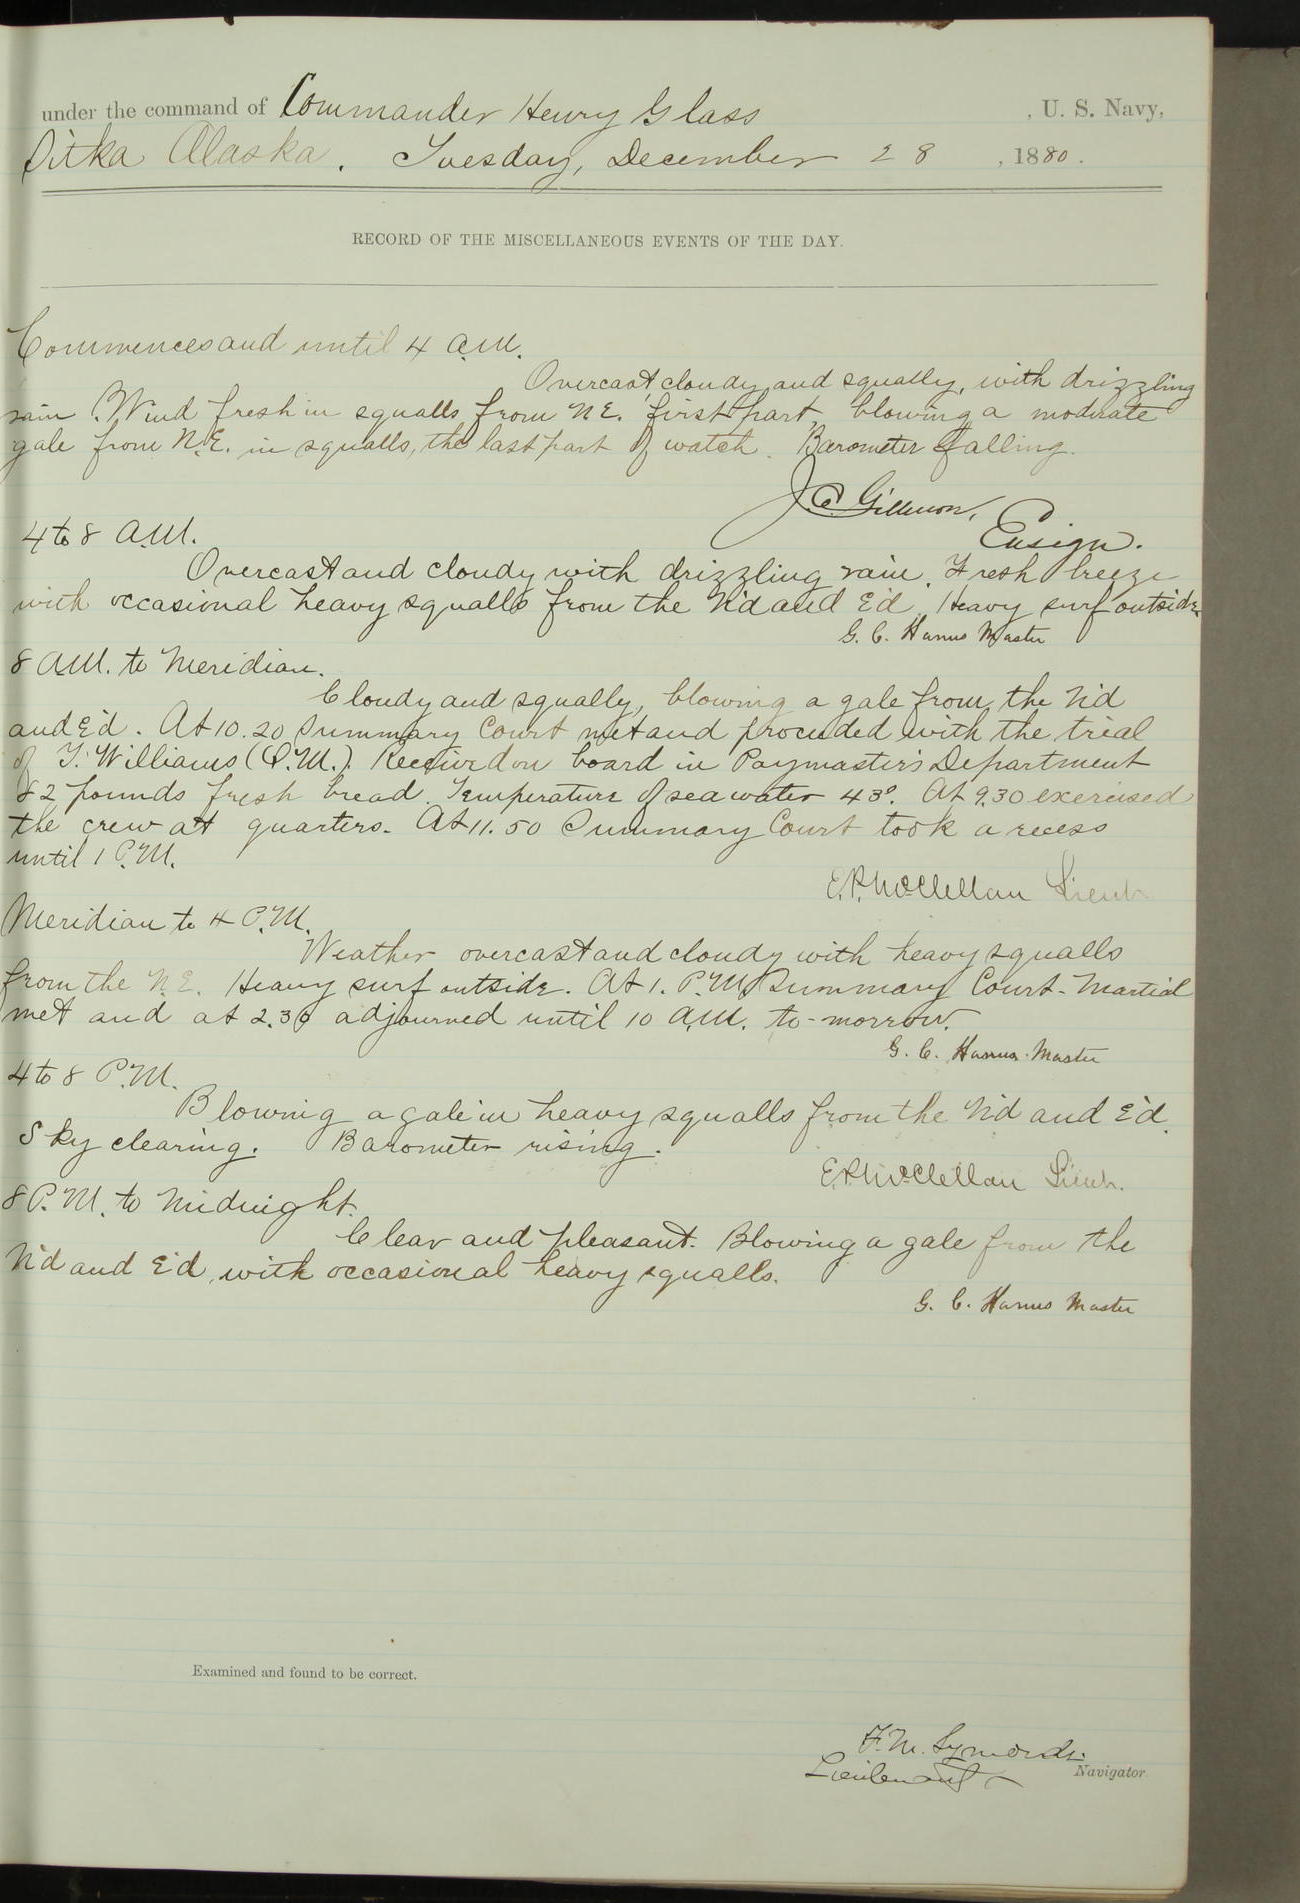 under the command of Commander Henry Glass , U. S. Navy,
Sitka Alaska. Tuesday, December 28 , 1880.
RECORD OF THE MISCELLANEOUS EVENTS OF THE DAY.
Commences and until 4 A.M.
Overcast, cloudy and squally, with drizzling
rain. Wind fresh in squalls from N.E. first part, blowing a moderate
gale from N.E. in squalls, the last part of watch. Barometer falling.
J.C. Gillmore,
Ensign.
4 to 8 A.M.
Overcast and cloudy with drizzling rain. Fresh breeze
with occasional heavy squalls from the N'd and E'd. Heavy surf outside.
G. C. Hanus Master
8 A.M. to Meridian.
Cloudy and squally, blowing a gale from the N'd
and E'd. At 10.20 Summary Court met and proceeded with the trial
of T. Williams (P.M.). Received on board in Paymaster's Department
82 pounds fresh bread. Temperature of sea water 43°. At 9.30 exercised
the crew at quarters. At 11.50 Summary Court took a recess
until 1 P.M.
E.P. McClellan Lieut.
Meridian to 4 P.M.
Weather overcast and cloudy with heavy squalls
from the N.E. Heavy surf outside. At 1. P.M. Summary Court-Martial
met and at 2.30 adjourned until 10 A.M. to-morrow.
G. C. Hanus Master
4 to 8 P.M.
Blowing a gale in heavy squalls from the N'd and E'd.
Sky clearing. Barometer rising.
E.P. McClellan Lieut.
8 P.M. to Midnight.
Clear and pleasant. Blowing a gale from the
N'd and E'd, with occasional heavy squalls.
G. C. Hanus Master
Examined and found to be correct.
F.M. Symonds
Lieutenant Navigator